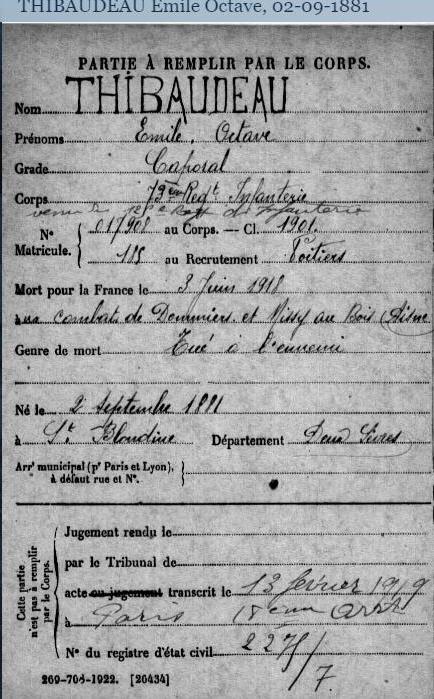 THIBAUDEAU Emile Octave, 02-09-1881
PARTIE À REMPLIR PAR LE CORPS.
Nom THIBAUDEAU
Prénoms Emile, Octave
Grade Caporal
Corps 79em Regt Infanterie
venu du d'Infanterie
N° Matricule. { 017908 au Corps. — Cl. 1901.
188 au Recrutement Poitiers
Mort pour la France le 3 Juin 1918
aux combats de Dommiers et Missy au Bois (Aisne
Genre de mort Tué à l'ennemi
Né le 2 Septembre 1881
à St Blandine Département Deux Sèvres
Arrt municipal (pr Paris et Lyon), }
à défaut rue et N°.
Cette partie n'est pas à remplir par le Corps.
Jugement rendu le
par le Tribunal de
acte ou jugement transcrit le 13 février 1919
à Paris 18em Arrt
N° du registre d'état civil 227/
7.
269-708-1922. [26434]